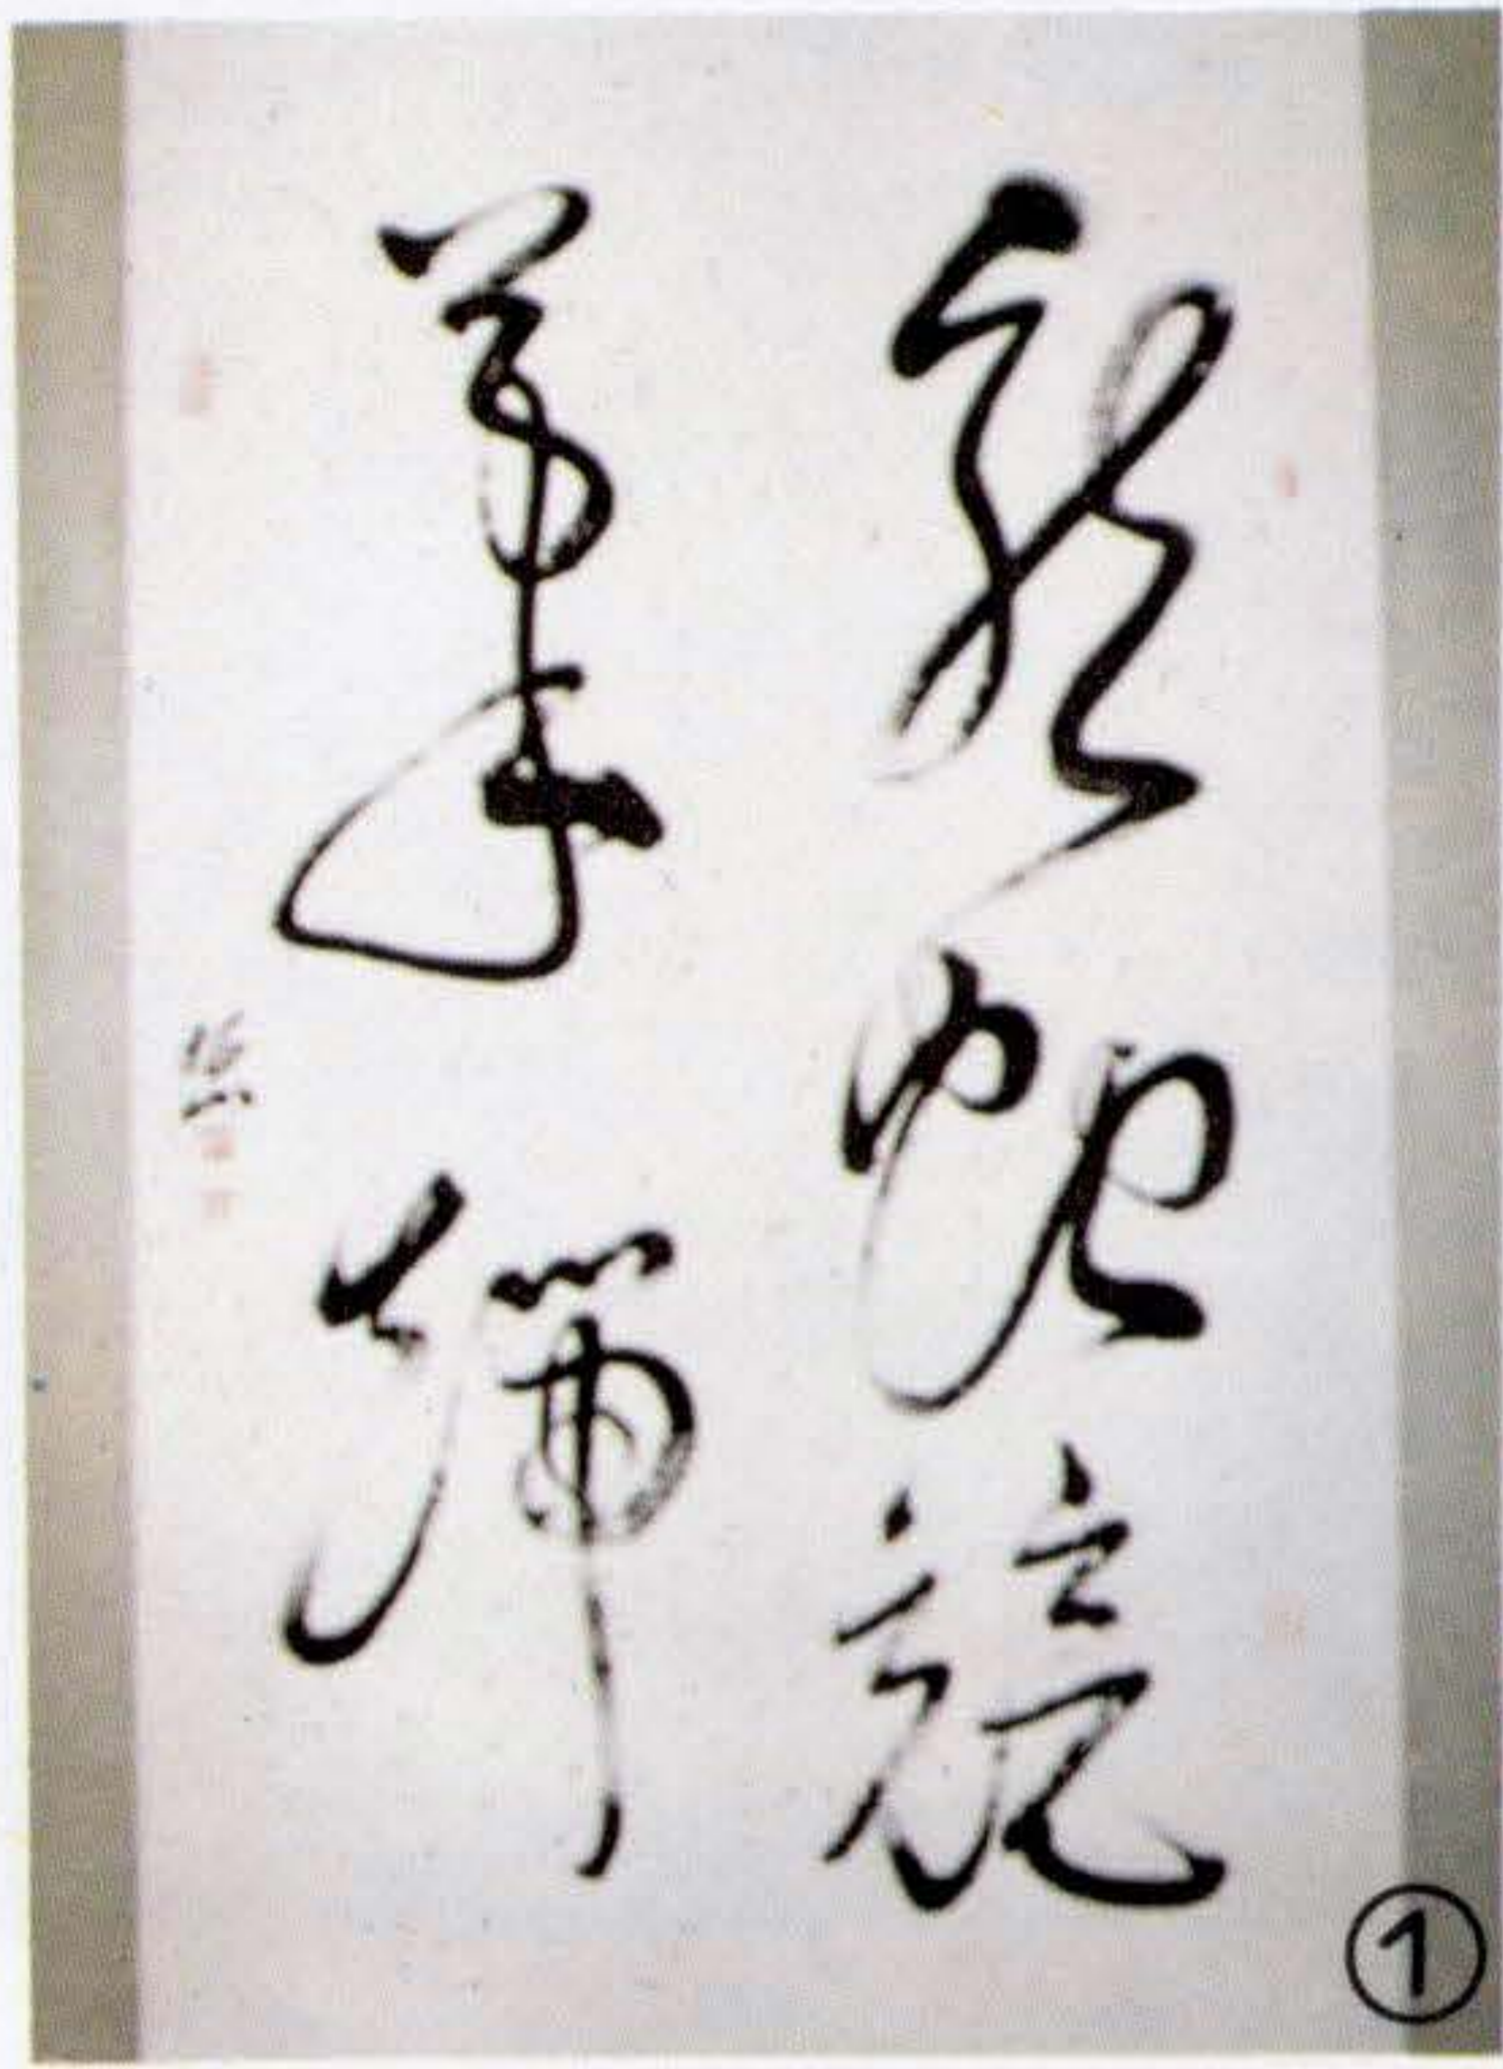 龍蛇競
筆端
①